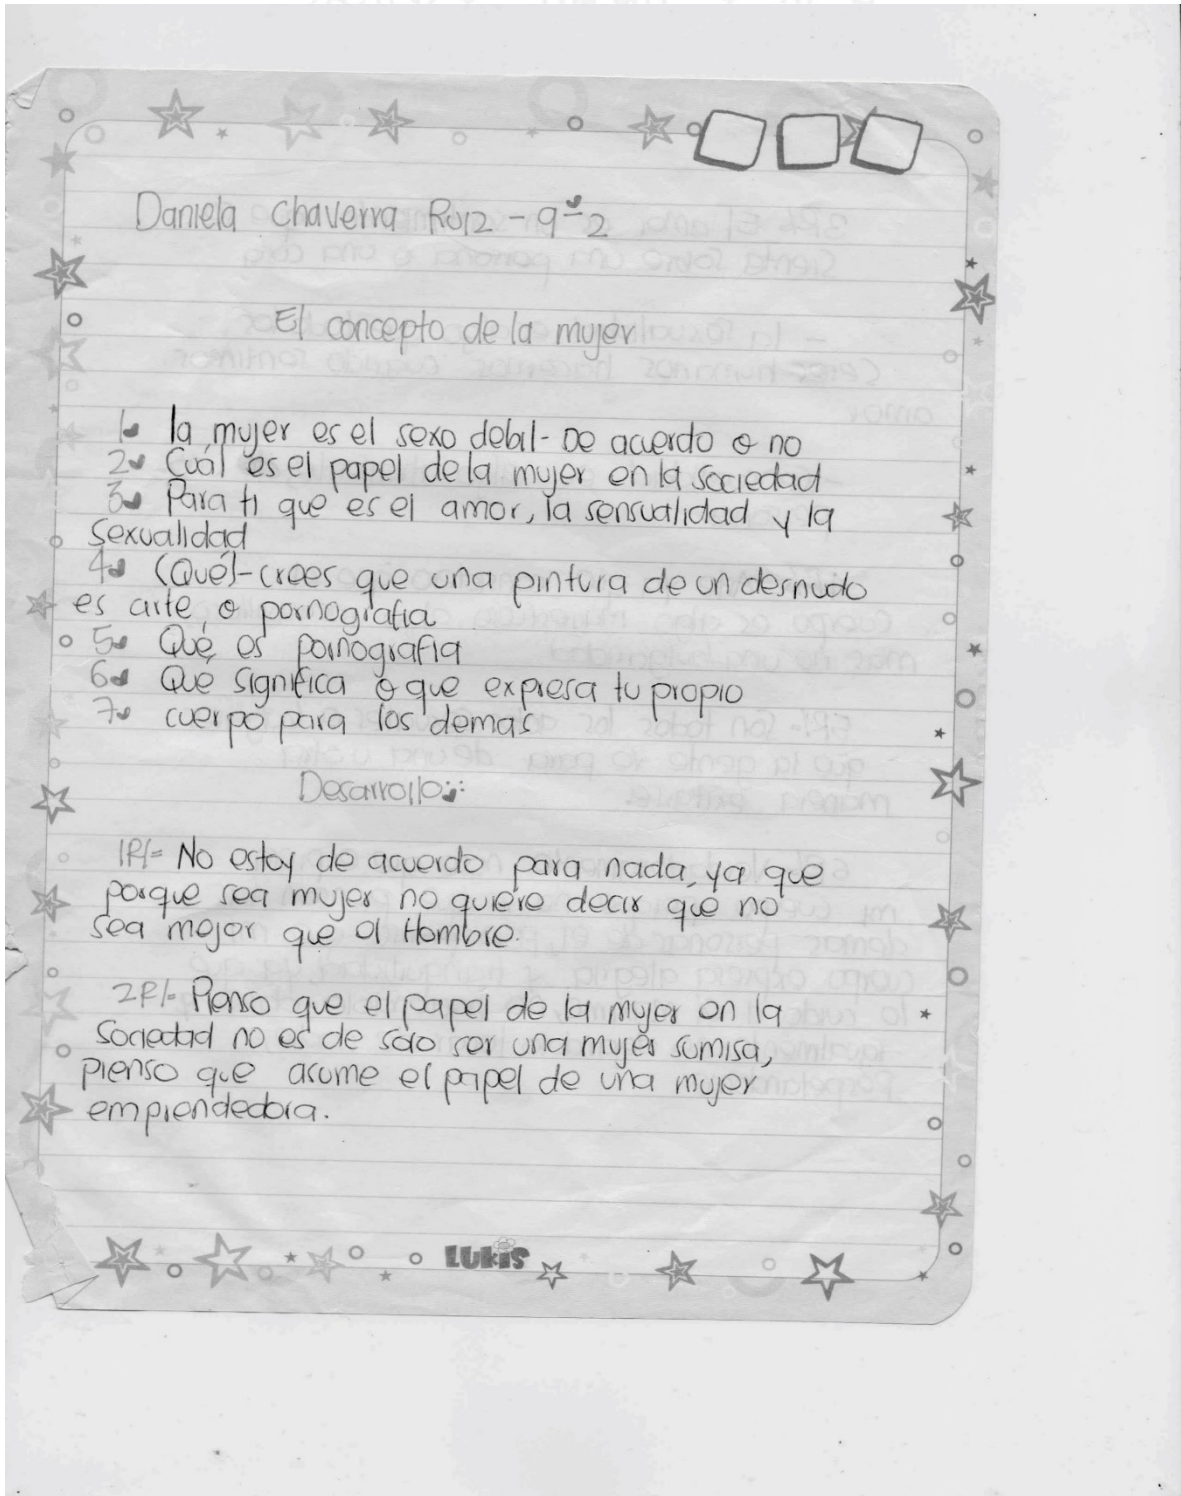 Daniela Chaverra Ruiz - 9-2
El concepto de la mujer
1. la mujer es el sexo debil - De acuerdo o no
2. Cuál es el papel de la mujer en la sociedad
3. Para ti que es el amor, la sensualidad y la
sexualidad
4. (Qué) - crees que una pintura de un desnudo
es arte, o pornografia
5. Qué es pornografia
6. Qué significa o que expresa tu propio
7. cuerpo para los demás
Desarrollo:
1R/= No estoy de acuerdo para nada, ya que
porque sea mujer no quiere decir que no
sea mejor que el Hombre.
2R/= Pienso que el papel de la mujer en la
sociedad no es de solo ser una mujer sumisa,
pienso que asume el papel de una mujer
emprendedora.
LUKIS